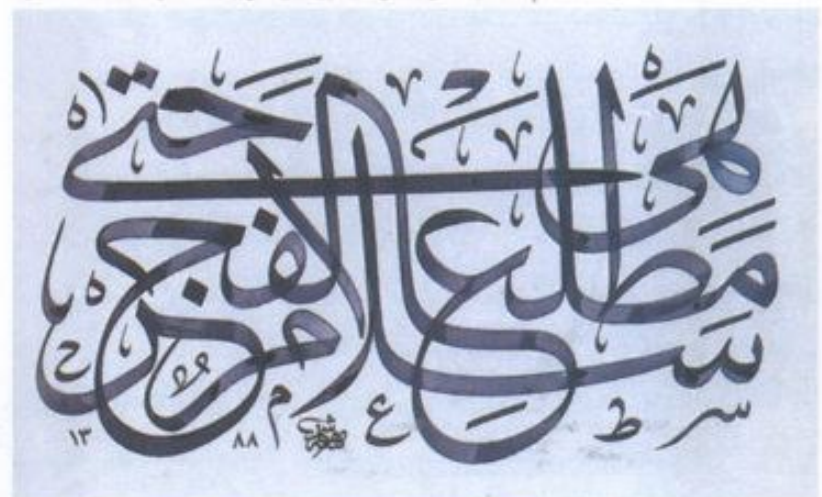 سلام هي حتى مطلع الفجر
١٣٨٨